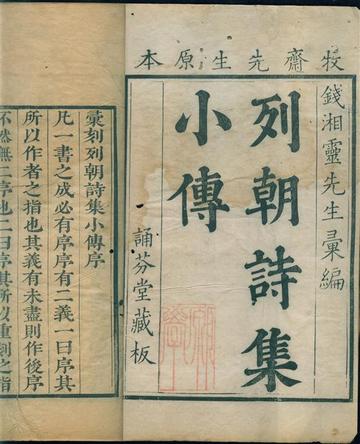 牧齋先生原本
錢湘靈先生彙編
列朝詩集
小傳
誦芬堂藏板
彙刻列朝詩集小傳序
凡一書之成必有序序有二義一曰序其
所以作者之指也其義有未盡則作後序
不然無二序也二曰序其所以重刻之指